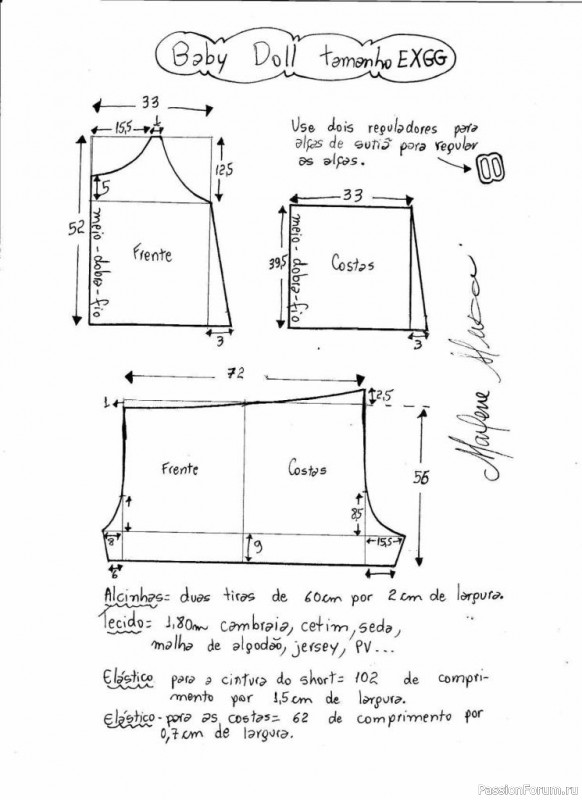 Baby Doll tamanho EXGG
33
15,5
12,5
5
52
meio-dobra-fio
Frente
3
Use dois reguladores para
alças de sutiã para regular
as alças.
33
39,5
meio-dobra-fio
Costas
3
Marlene Mukai
72
1
2,5
Frente
Costas
56
8,5
8
9
15,5
6
Alcinhas= duas tiras de 60cm por 2cm de largura.
Tecido= 1,80m cambraia, cetim, seda,
malha de algodão, jersey, PV...
Elástico para a cintura do short= 102 de compri-
mento por 1,5cm de largura.
Elástico-para as costas= 62 de comprimento por
0,7cm de largura.
PassionForum.ru